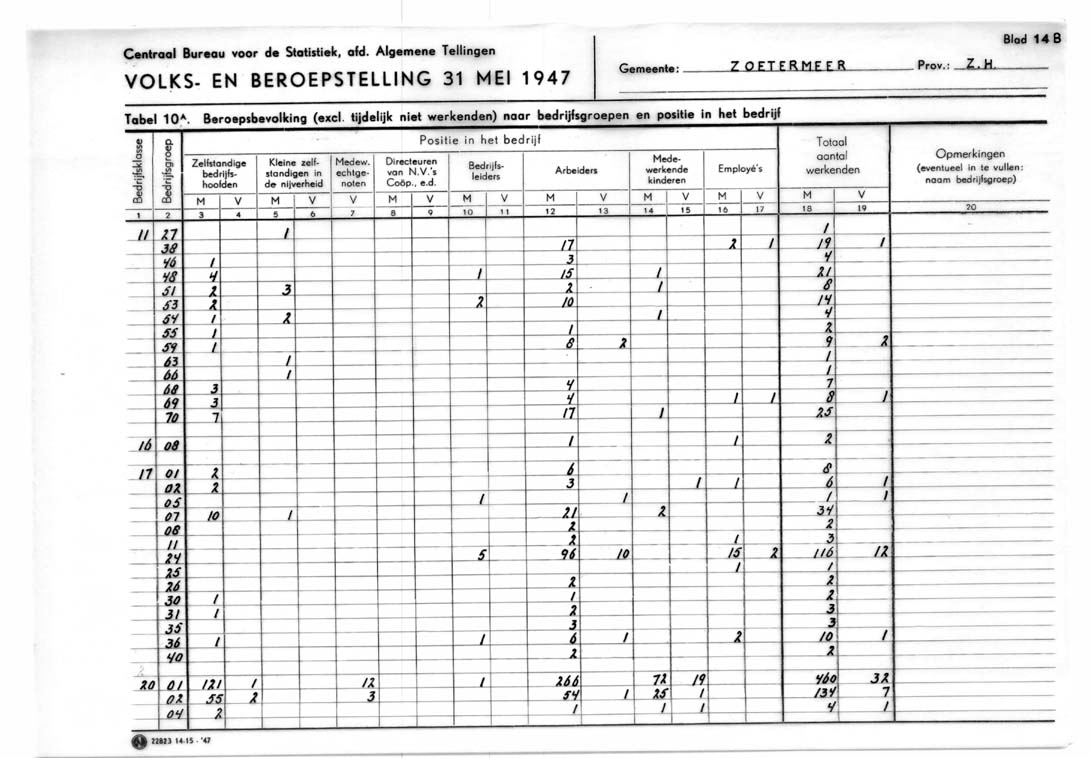 Blad 14 B
Centraal Bureau voor de Statistiek, afd. Algemene Tellingen
VOLKS- EN BEROEPSTELLING 31 MEI 1947
Gemeente: ZOETERMEER Prov.: Z.H.
Tabel 10ᴬ. Beroepsbevolking (excl. tijdelijk niet werkenden) naar bedrijfsgroepen en positie in het bedrijf
Bedrijfsklasse
Bedrijfsgroep
Positie in het bedrijf
Zelfstandige bedrijfs-hoofden
Kleine zelf-standigen in de nijverheid
Medew. echtge-noten
Directeuren van N.V.'s Coöp., e.d.
Bedrijfs-leiders
Arbeiders
Mede-werkende kinderen
Employé's
Totaal aantal werkenden
Opmerkingen (eventueel in te vullen: naam bedrijfsgroep)
M V M V V M V M V M V M V M V M V
1 2 3 4 5 6 7 8 9 10 11 12 13 14 15 16 17 18 19 20
11 27 1 1
38 17 2 1 19 1
46 1 3 4
48 4 1 15 1 21
51 2 3 2 1 8
53 2 2 10 14
54 1 2 1 4
55 1 1 2
59 1 8 2 9 2
63 1 1
66 1 1
68 3 4 7
69 3 4 1 1 8 1
70 7 17 1 25
16 08 1 1 2
17 01 2 6 8
02 2 3 1 1 6 1
05 1 1 1 1
07 10 1 21 2 34
08 2 2
11 2 1 3
24 5 96 10 15 2 116 12
25 1 1
26 2 2
30 1 1 2
31 1 2 3
35 3 3
36 1 1 6 1 2 10 1
40 2 2
20 01 121 1 12 1 266 72 19 460 32
02 55 2 3 54 1 25 1 134 7
04 2 1 1 1 4 1
22823 14-15 - '47